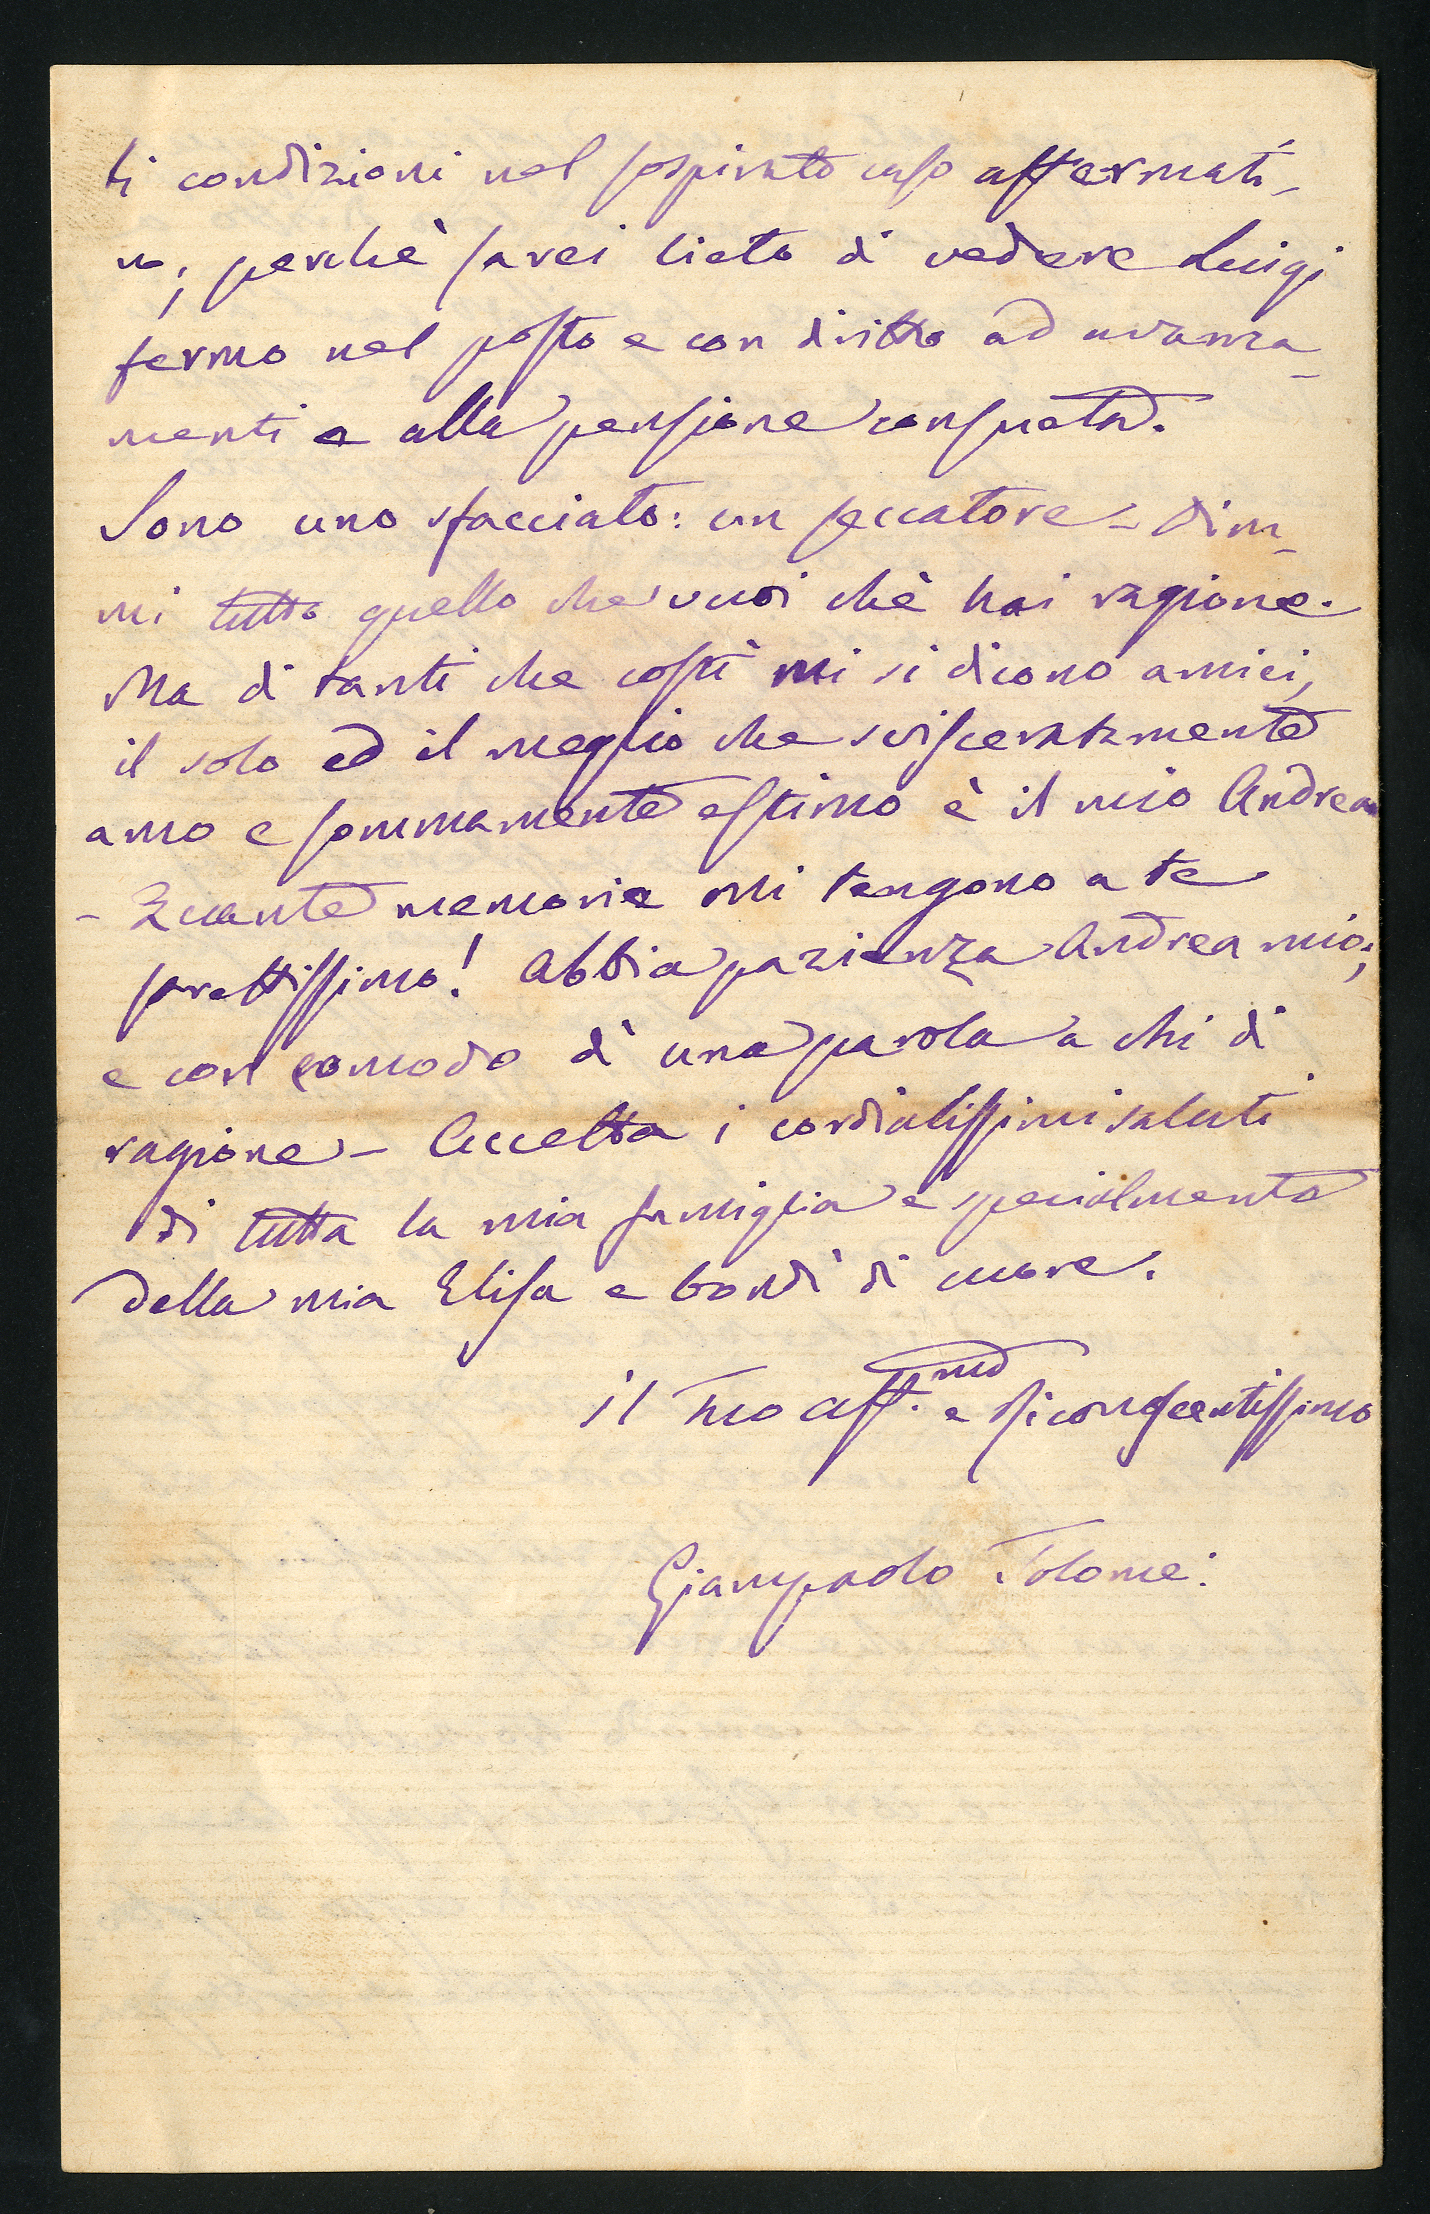 ti condizioni nel sospirato caso affermati-
vo; perchè sarei lieto di vedere Luigi
fermo nel posto e con diritto ad avanza-
menti e alla pensione consueta.
Sono uno sfacciato: un seccatore - Dim-
mi tutto quello che vuoi chè hai ragione.
Ma di tanti che costì mi si dicono amici,
il solo ed il meglio che svisceratamente
amo e sommamente estimo è il mio Andrea
- Quante memorie mi tengono a te
strettissimo! Abbia pazienza Andrea mio;
e con comodo dì una parola a chi di
ragione - Accetta i cordialissimi saluti
di tutta la mia famiglia e specialmente
della mia Elisa e bondì di cuore.
il Tuo aff.mo e riconoscentissimo
Giampaolo Tolomei